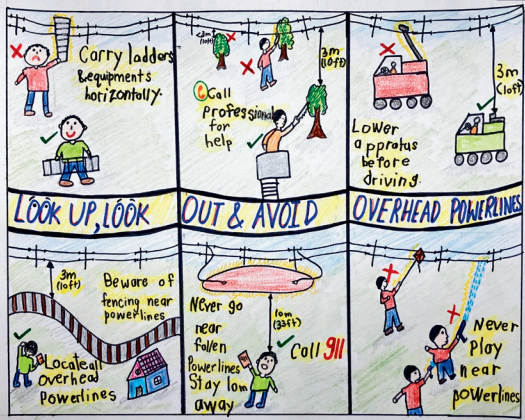 Carry ladders
& equipments
horizontally.
3m
(10ft)
Call
professional
for
help
3m
(10ft)
Lower
appratus
before
driving.
3m
(10ft)
LOOK UP, LOOK OUT & AVOID OVERHEAD POWERLINES
3m
(10ft)
Beware of
fencing near
powerlines
Locate all
Overhead
Powerlines
Never go
near
fallen
Powerlines
Stay 10m
away
10m
(33ft)
Call 911
Never
Play
near
powerlines